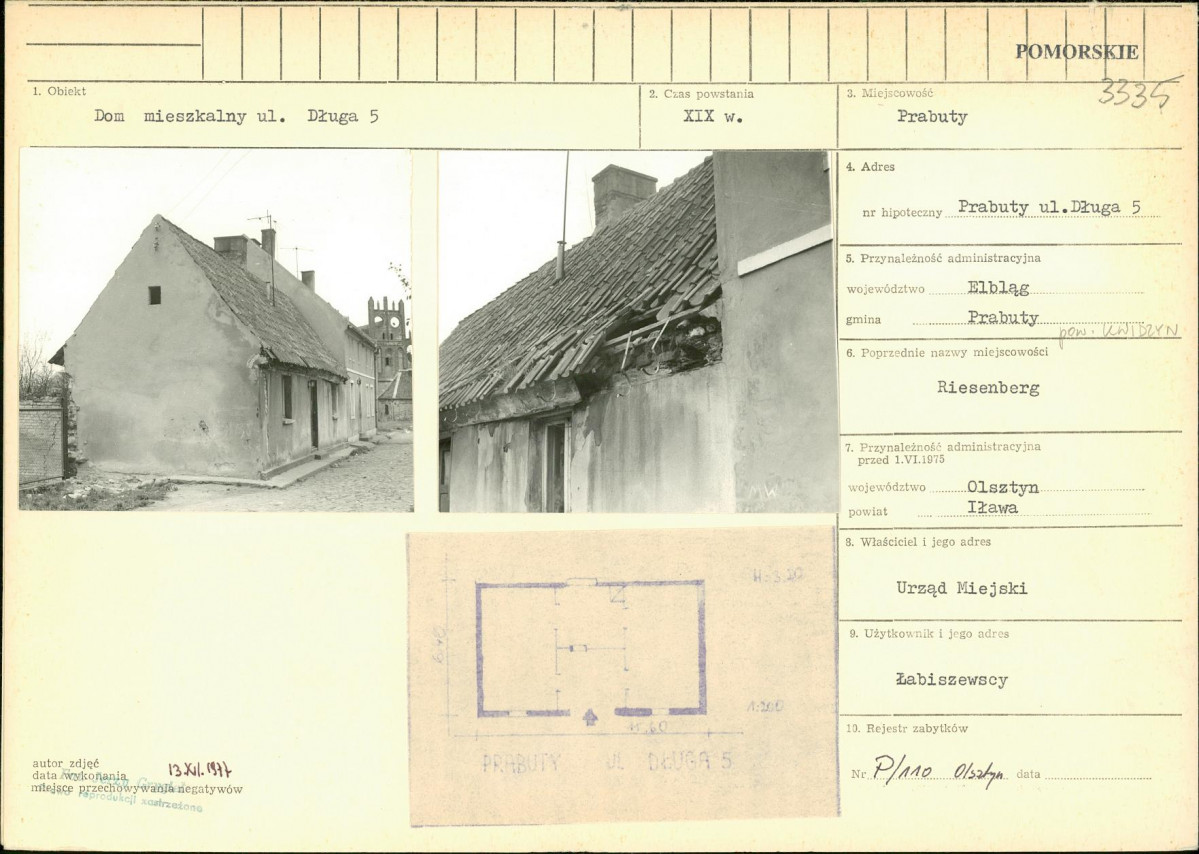 POMORSKIE
3335
1. Obiekt
Dom mieszkalny ul. Długa 5
2. Czas powstania
XIX w.
3. Miejscowość
Prabuty
4. Adres
nr hipoteczny Prabuty ul.Długa 5
5. Przynależność administracyjna
województwo Elbląg
gmina Prabuty
pow. KWIDZYN
6. Poprzednie nazwy miejscowości
Riesenberg
7. Przynależność administracyjna
przed 1.VI.1975
województwo Olsztyn
powiat Iława
8. Właściciel i jego adres
Urząd Miejski
9. Użytkownik i jego adres
Łabiszewscy
10. Rejestr zabytków
Nr P/110 Olsztyn data
MW
H=3.20
1:200
11.60
PRABUTY UL DŁUGA 5
autor zdjęć
data wykonania 13.XII.1977
miejsce przechowywania negatywów
reprodukcji zastrzeżone